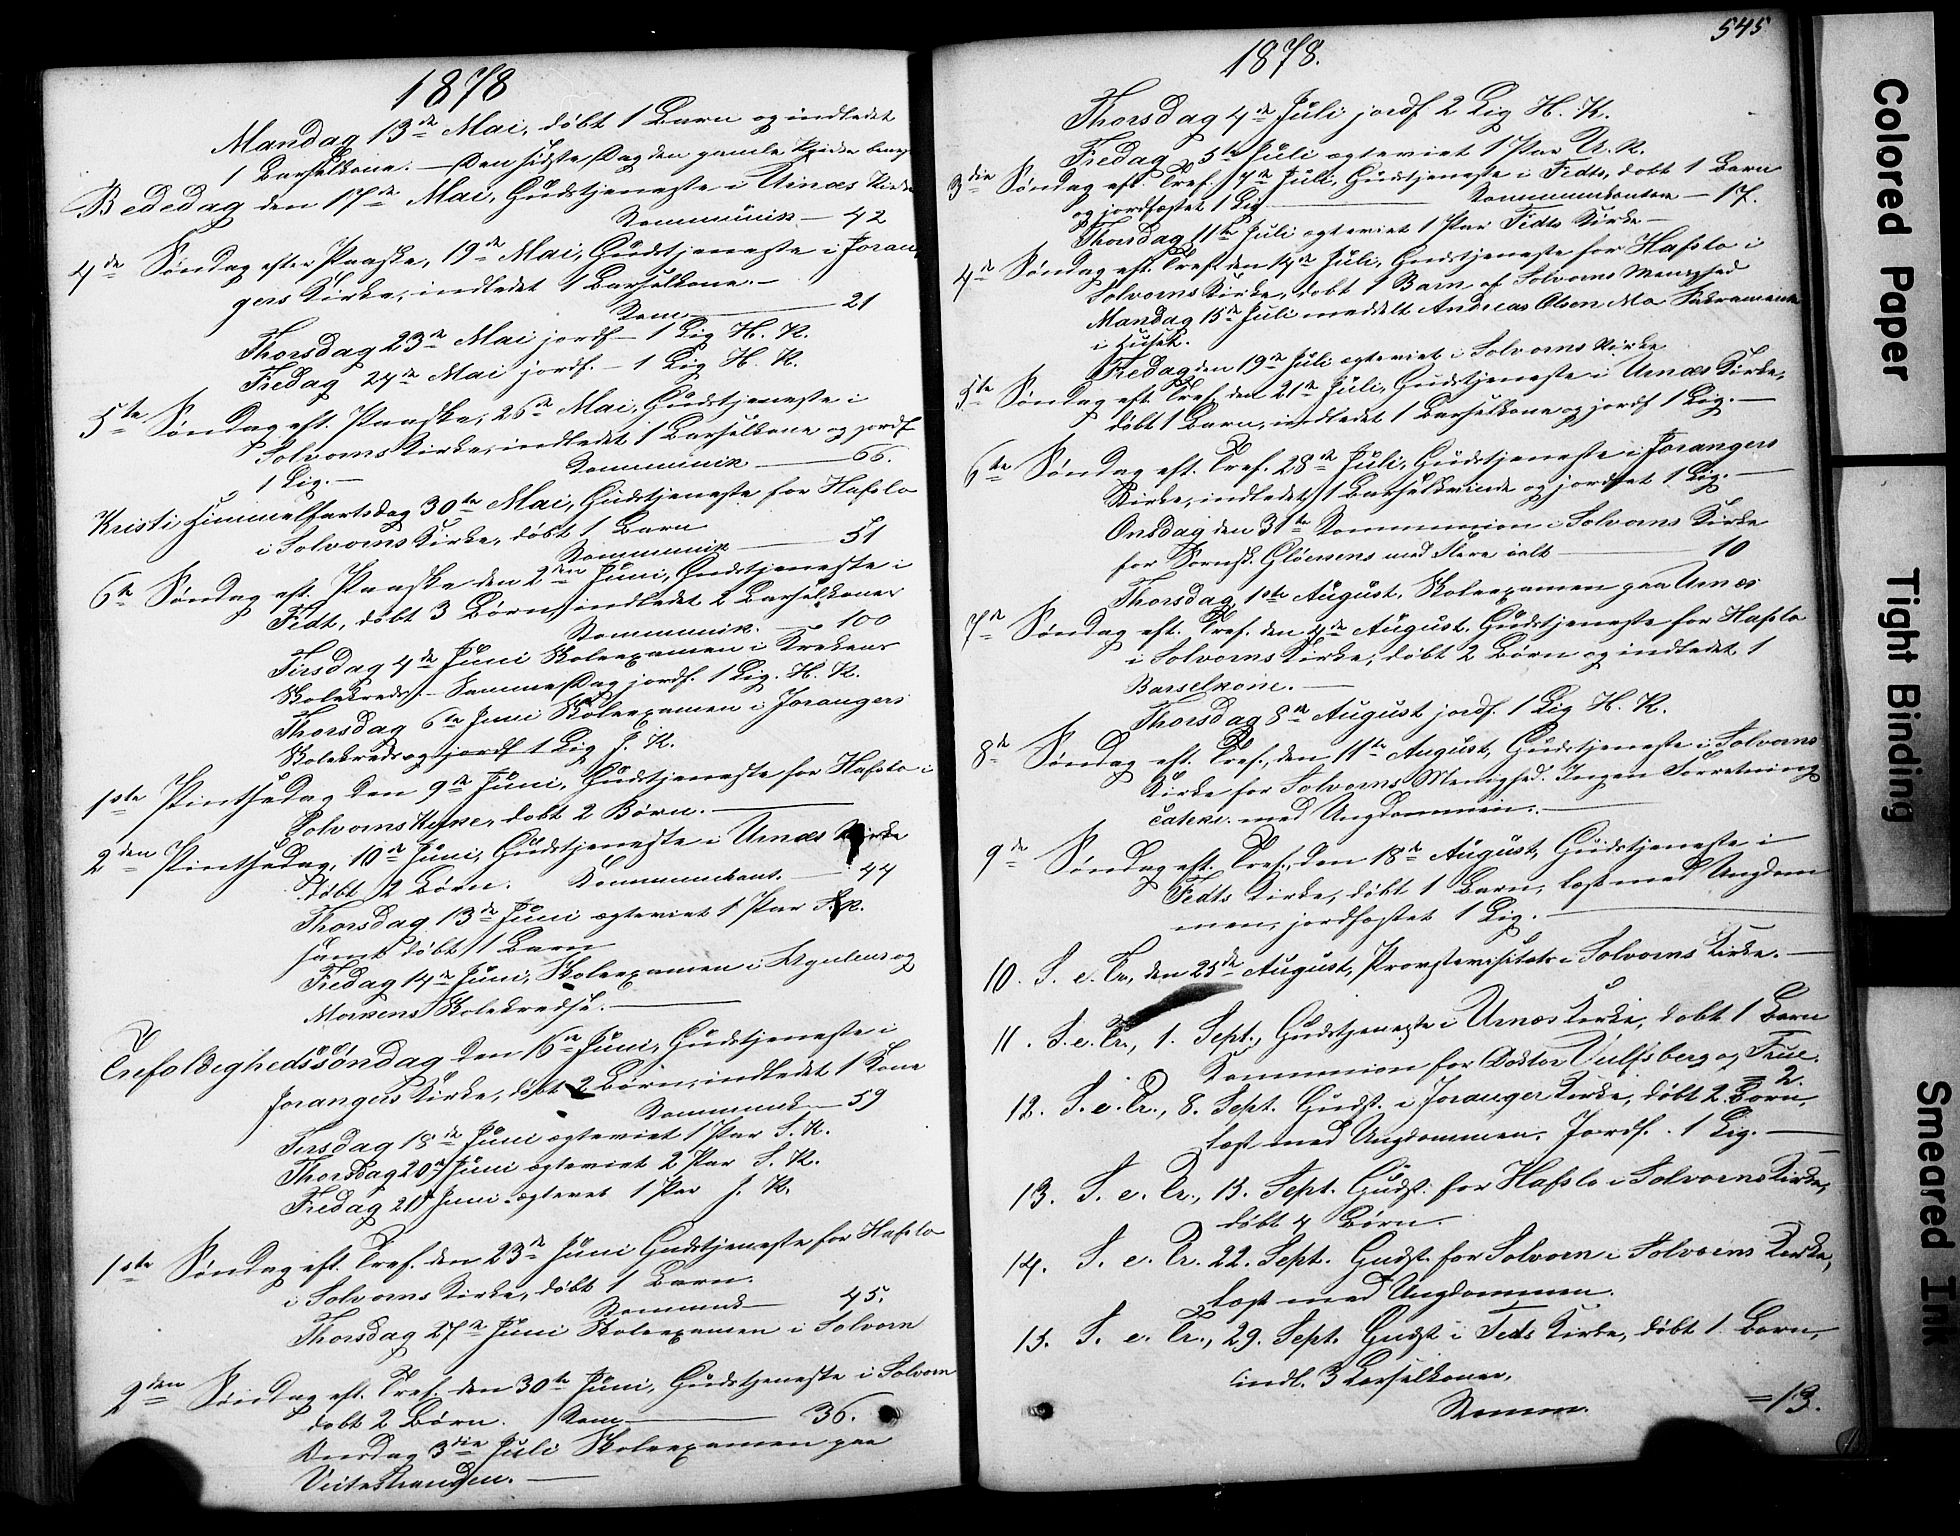 1878
Mandag 13de Mai, döbt 1 Barn og indledet
1 Barselkone. — Den sidste Dag den gamle Kirke
Bededag den 17de Mai, Gudstjeneste i Urnæs Kirke
Kommunik — 42
4de Søndag efter Paaske, 19de Mai, Gudstjeneste i Joran-
gers Kirke, indledet 1 Barselkone. —
Kom — 21
Thorsdag 23de Mai jordf — 1 Lig H. K.
Fredag 24de Mai jordf. — 1 Lig H. K.
5te Søndag eft. Paaske, 26de Mai, Gudstjeneste i
Solvorns Kirke, indledet 1 Barselkone og jordf
1 Lig. — Kommunik — 66.
Kristi Himmelfartsdag 30te Mai, Gudstjeneste for Hafslo
i Solvorns Kirke, döbt 1 Barn
Kommunik — 51
6te Søndag eft. Paaske den 2den Juni, Gudstjeneste i
Fedt, döbt 3 Børn, indledet 2 Barselkoner
Kommunik. — 100
Tirsdag 4de Juni Skoleexamen i Krekens
Skolekreds. — Samme Dag jordf. 1 Lig. H. K.
Thorsdag 6te Juni Skoleexamen i Jorangers
Skolekreds og jordf 1 Lig J. K.
1ste Pintsedag den 9de Juni, Gudstjeneste for Hafslo i
Solvorns Kirke, döbt 2 Børn.
2den Pintsedag, 10de Juni, Gudstjeneste i Urnæs Kirke
döbt 2 Børn. Kommunikant. — 44
Thorsdag 13de Juni ægteviet 1 Par S. K.
samt döbt 1 Barn
Fredag 14de Juni, Skoleexamen i og
Morkens Skolekredse. —
Trefoldighedssøndag den 16de Juni, Gudstjeneste i
Jorangers Kirke, döbt 2 Børn, indledet 1 Kone
Kommunik — 59
Tirsdag 18de Juni ægteviet 1 Par S. K.
Thorsdag 20de Juni ægteviet 2 Par S. K.
Fredag 21de Juni ægteviet 1 Par J. K.
1ste Søndag eft. Tref. den 23de Juni Gudstjeneste for Hafslo
i Solvorns Kirke, döbt 1 Barn.
Kommunik — 45.
Thorsdag 27de Juni Skoleexamen i Solvorn
2den Søndag eft. Tref. den 30te Juni, Gudstjeneste i Solvorn
döbt 2 Børn. Kom — 36.
Onsdag 3die Juli Skoleexamen paa
Veitestranden. —
545
1878.
Thorsdag 4de Juli jordf 2 Lig H. K.
Fredag 5te Juli ægteviet 1 Par U. K.
3die Søndag eft. Tref. 7de Juli, Gudstjeneste i Fedts, döbt 1 Barn
og jordfæstet 1 Lig — Kommunikantere — 17.
Thorsdag 11te Juli ægteviet 1 Par Fedts Kirke —
4de Søndag eft. Tref. den 14de Juli, Gudstjeneste for Hafslo i
Solvorns Kirke, döbt 1 Barn af Solvorns Menighed
Mandag 15de Juli meddelt Andreas Olsen Mo Sakramentet
i Huset.
Fredag den 19de Juli ægteviet i Solvorns Kirke
5te Søndag eft. Tref. den 21de Juli, Gudstjeneste i Urnæs Kirke,
döbt 1 Barn, indledet 1 Barselkone og jordf 1 Lig. —
6te Søndag eft. Tref. 28de Juli, Gudstjeneste i Jorangers
Kirke, indledet 1 Barselkvinde og jordfæstet 1 Lig. —
Onsdag den 31te Kommunion i Solvorns Kirke
for med Flere ialt — 10
Thorsdag 1ste August, Skoleexamen paa Urnæs
7de Søndag eft. Tref. den 4de August, Gudstjeneste for Hafslo
i Solvorns Kirke, döbt 2 Børn og indledet 1
Barselkone. —
Thorsdag 8de August jordf. 1 Lig H. K.
8de Søndag eft. Tref., den 11te August, Gudstjeneste i Solvorns
Kirke for Solvorns Menighed. Ingen Forretning
catek. med Ungdommen. —
9de Søndag eft. Tref. den 18de August, Gudstjeneste i
Fedts Kirke, döbt 1 Barn, læst med Ungdom
men, jordfæstet 1 Lig. —
10. S. e. Tr., den 25de August, Provstevisitats i Solvorns Kirke. —
11. S. e. Tr., 1. Sept., Gudstjeneste i Urnes Kirke, döbt 1 Barn
Kommunion for Doktor Vulfsberg og Frue.
= 2.
12. S. e. Tr., 8. Sept. Gudst. i Joranger Kirke, döbt 2 Børn,
læst med Ungdommen. Jordf. 1 Lig. —
13. S. e. Tr., 15. Sept. Gudst. for Hafslo i Solvorns Kirke,
döbt 4 Børn.
14. S. e. Tr. 22. Sept. Gudst. for Solvorn i Solvorns Kirke,
læst med Ungdommen.
15. S. e. Tr., 29. Sept. Gudst. i Feds Kirke, döbt 1 Barn,
indl. 3 Barselkoner,
Komm. = 13.
Colored Paper
Tight Binding
Smeared Ink